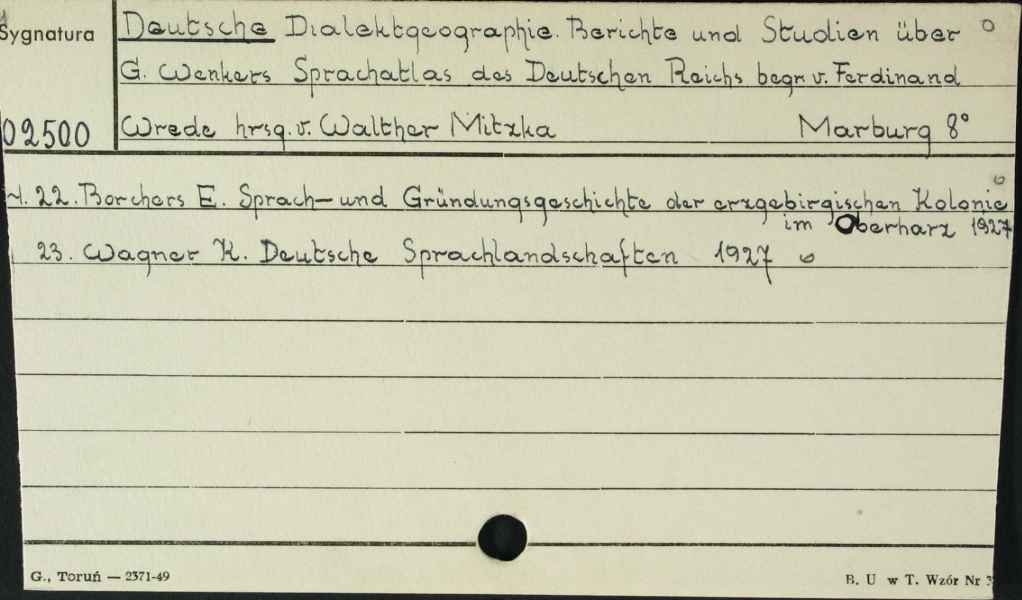 Sygnatura
Deutsche Dialektgeographie. Berichte und Studien über
G. Wenkers Sprachatlas des Deutschen Reichs begr. v. Ferdinand
02500
Wrede hrsg. v. Walther Mitzka Marburg 8°
22. Borchers E. Sprach- und Gründungsgeschichte der erzgebirgischen Kolonie
im Oberharz 1927
23. Wagner K. Deutsche Sprachlandschaften 1927
G., Toruń — 2371-49
B. U w T. Wzór Nr